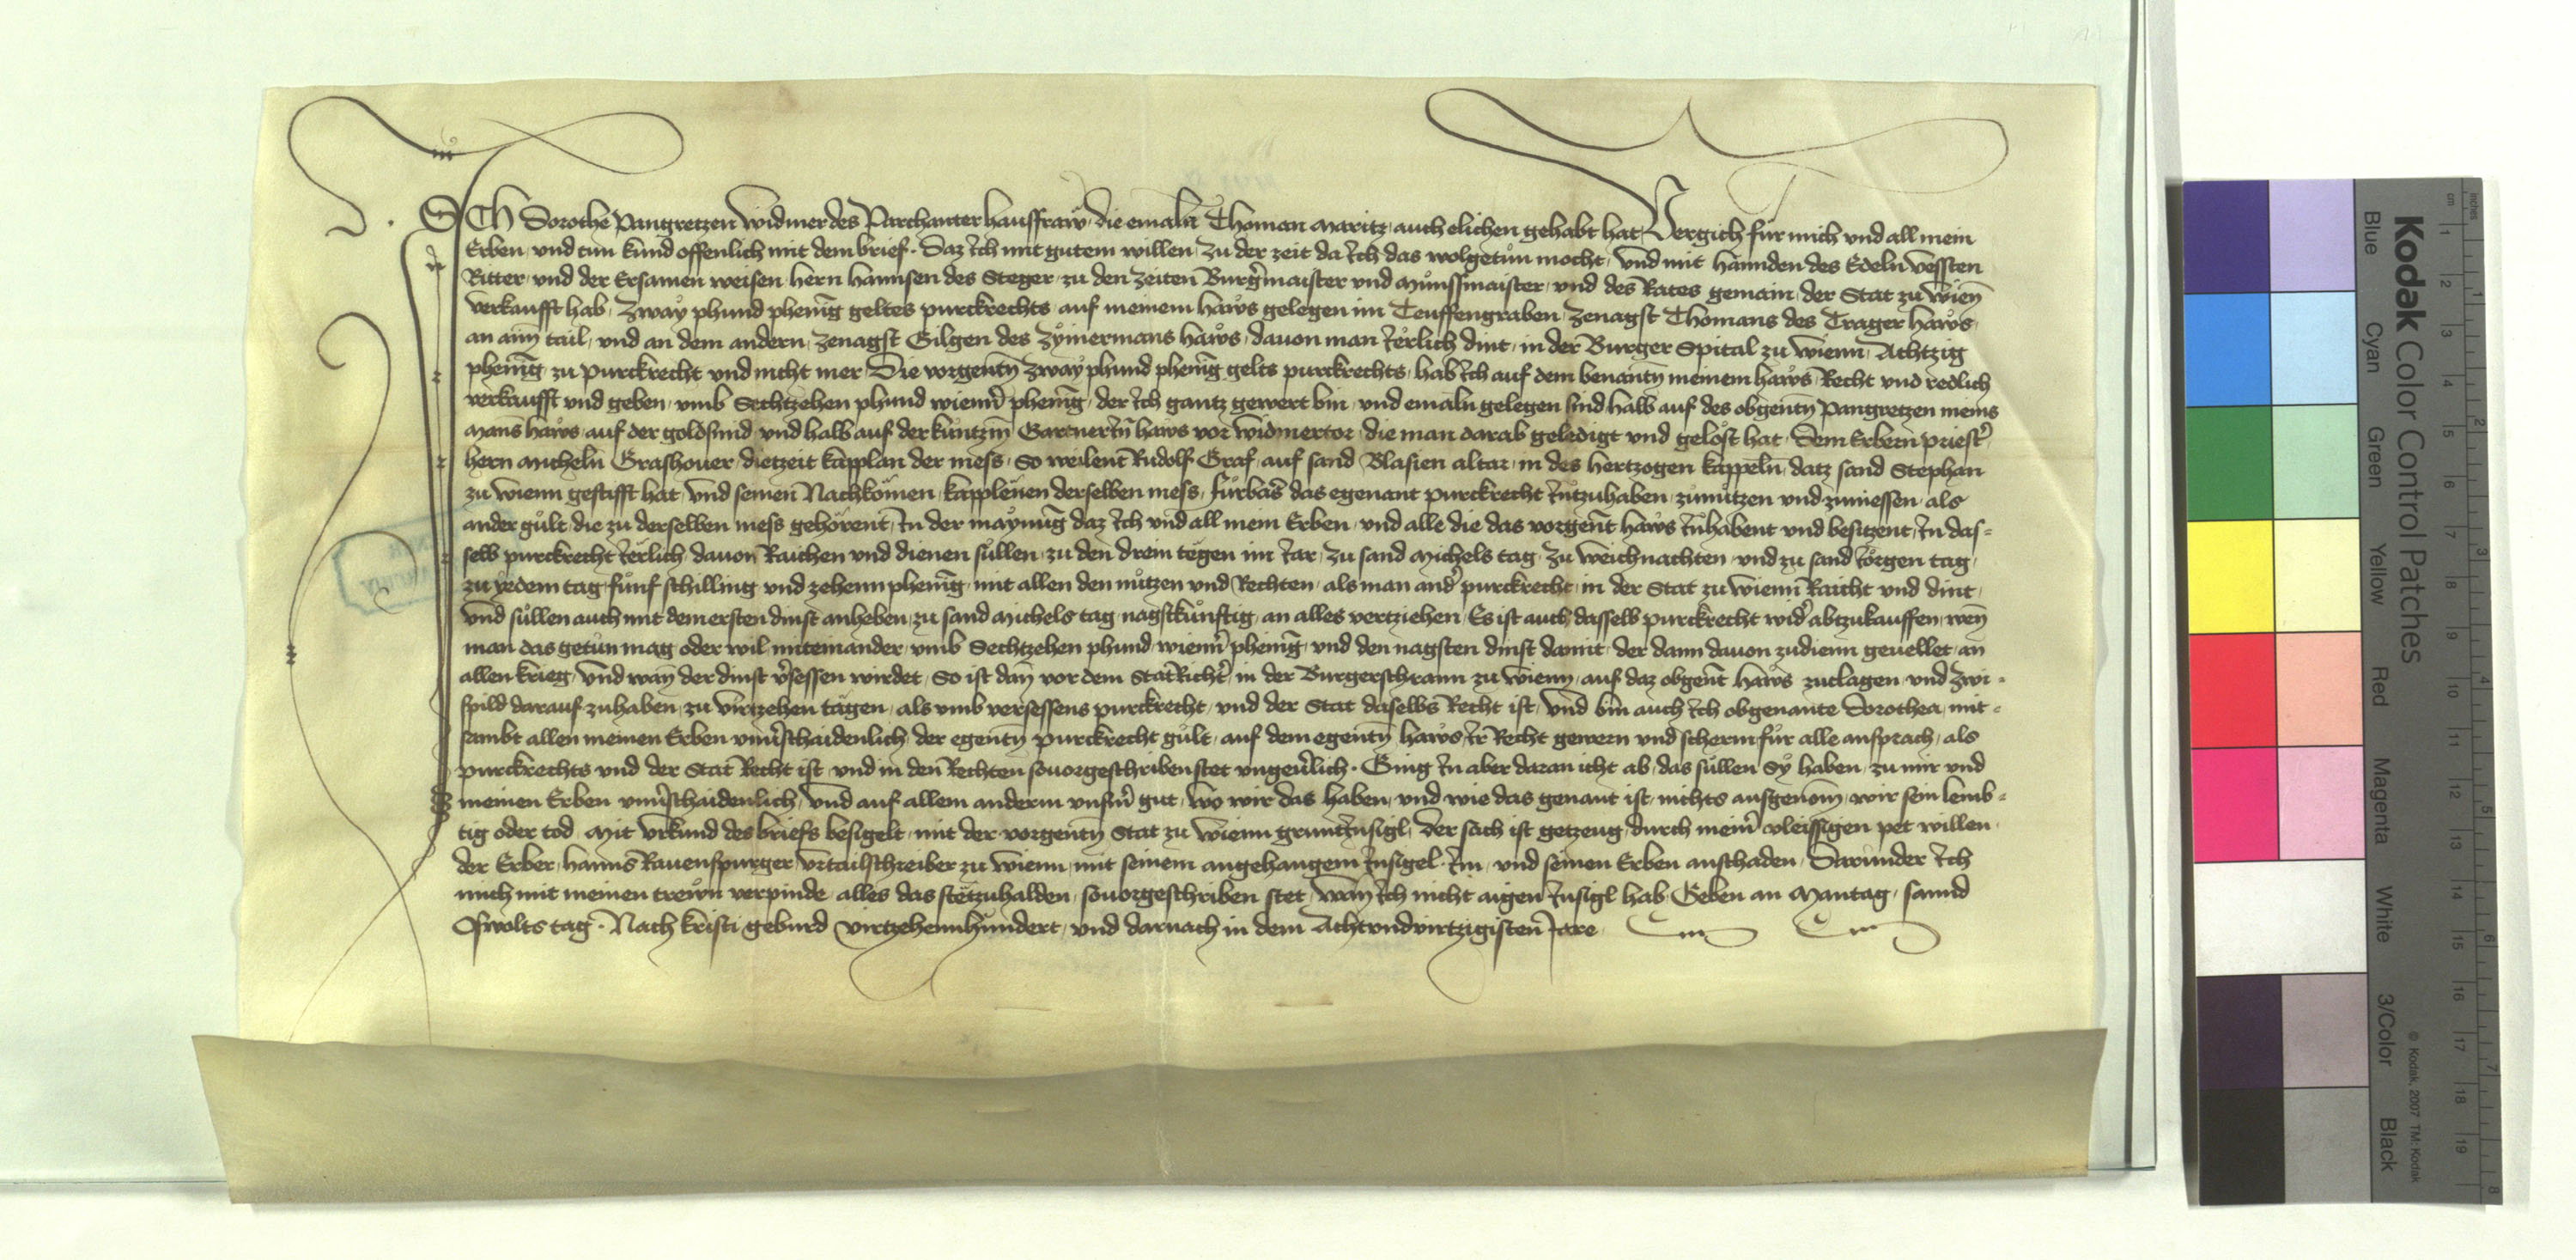 ICH Dorothe Pangretzen widmer des Parchanter hausfraw, die emaln Thoman Maritz auch elichen gehabt hat, Vergich für mich und all mein
Erben, und tun kund offenlich mit dem brief. Daz ich mit gutem willen, zu der zeit da ich das wolgetůn mocht, Und mit hannden des Edeln vessten
Ritter, und der Ersamen weisen, hern Hannsen des Steger, zu den zeiten Burgermaister und Můnssmaister, und des Rates gemain, der Stat zu Wienn
verkaufft hab, Zway phund phenig geltes purckrechts, auf meinem haws gelegen im Teuffengraben, zenagst Thomans des Trager haws,
an aim tail, und an dem andern, zenagst Gilgen des Zymermans haws, dauon man ierlich dint, in der Burger Spital zu Wienn, Achtzig
phenig zu purckrecht und nicht mer, Die vorgentn zway phund phenig gelts purckrechts, hab ich auf dem benantn meinem haws, Recht und redlich
verkaufft und geben, umb Sechtzehen phund wienner phenig, der ich gantz gewert bin, und emaln gelegen sind halb auf des obgentn Pangretzen meins
Mans haws, auf der goldsmid und halb auf der kuntzin Gartnerin haws vor widmertor, die man darab geledigt und gelöst hat, Dem Erbern priester
hern Micheln Grashouer, dietzeit kapplan der mess, So weilent Rudolf Graf, auf sand Blasien altar, in des hertzogen kappeln, datz sand Stephan
zu Wienn gestifft hat, und seinen Nachkomen, kapplenen derselben mess, fürbas das egenant purckrecht inntzuhaben, zunützen und zuniessen, als
ander gült die zu derselben mess gehörent, In der maynung daz ich und all mein Erben, und alle die das vorgent haws innhabent und besitzent, in das-
selb purckrecht ierlich dauon Raichen und dienen süllen, zu den drein tegen im iar, zu sand Michels tag, zu weichnachten, und zu sand Jörgen tag,
zu yedem tag, fünf schilling und zehenn phenig, mit allen den nützen und Rechten, als man ander purckrecht, in der Stat zu Wienn Raicht und dint,
Und süllen auch mit dem ersten dinst anheben, zu sand Michels tag nagstkünftig, an alles vertziehen, Es ist auch dasselb purckrecht wider abtzukauffen, wen
man das getun mag oder wil miteinander, umb Sechtzehen phund wienner phenig, und den nagsten dinst damit, der dann dauon zudienn geuellet, an
allen krieg, Und wan der dinst versessen wirdet, So ist dan vor dem Statrichter, in der Burgerschrann zu Wienn, auf daz obgent haws zuclagen, und zwi-
spild darauf zuhaben, zu virtzehen tägen, als umb versessens purckrecht, und der Stat daselbs Recht ist, Und bin auch ich obgenante Dorothea, mit-
sambt allen meinen Erben unuerschaidenlich, der egentn purckrecht gült, auf dem egentn haws, ir Recht gewern und scherm für alle ansprach, als
purckrechts und der Stat Recht ist, und in den Rechten souorgeschriben stet ungeuerlich. Ging in aber daran icht ab, das süllen Sy haben, zu mir und
meinen Erben unuerschaidenlich, Und auf allem anderm unserm gut, wo wir das haben, und wie das genant ist, nichts ausgenom, wir sein lemb-
tig oder tod, Mit urkund des briefs besigelt, mit der vorgentn Stat zu Wienn gruntinsigl, Der sach ist getzeug, durch meiner vleissigen pet willen,
der Erber, Hanns Rauenspurger, urtailschreiber zu Wienn, mit seinem angehangem insigel, im, und seinen Erben anschaden, Darunder ich
mich mit meinen trewn verpinde, alles das stetzuhalden, souorgeschriben stet, wan ich nicht aigen insigl hab, Geben an Mantag, sannd
Oswolts tag. Nach kristi geburd virtzehennhundert, und darnach in dem Achtundvirtzigisten Jare
Kodak Color Control Patches
Blue Cyan Green Yellow Red Magenta White 3/Color Black
© Kodak, 2007 TM: Kodak
cm 1 2 3 4 5 6 7 8 9 10 11 12 13 14 15 16 17 18 19
inches 1 2 3 4 5 6 7 8